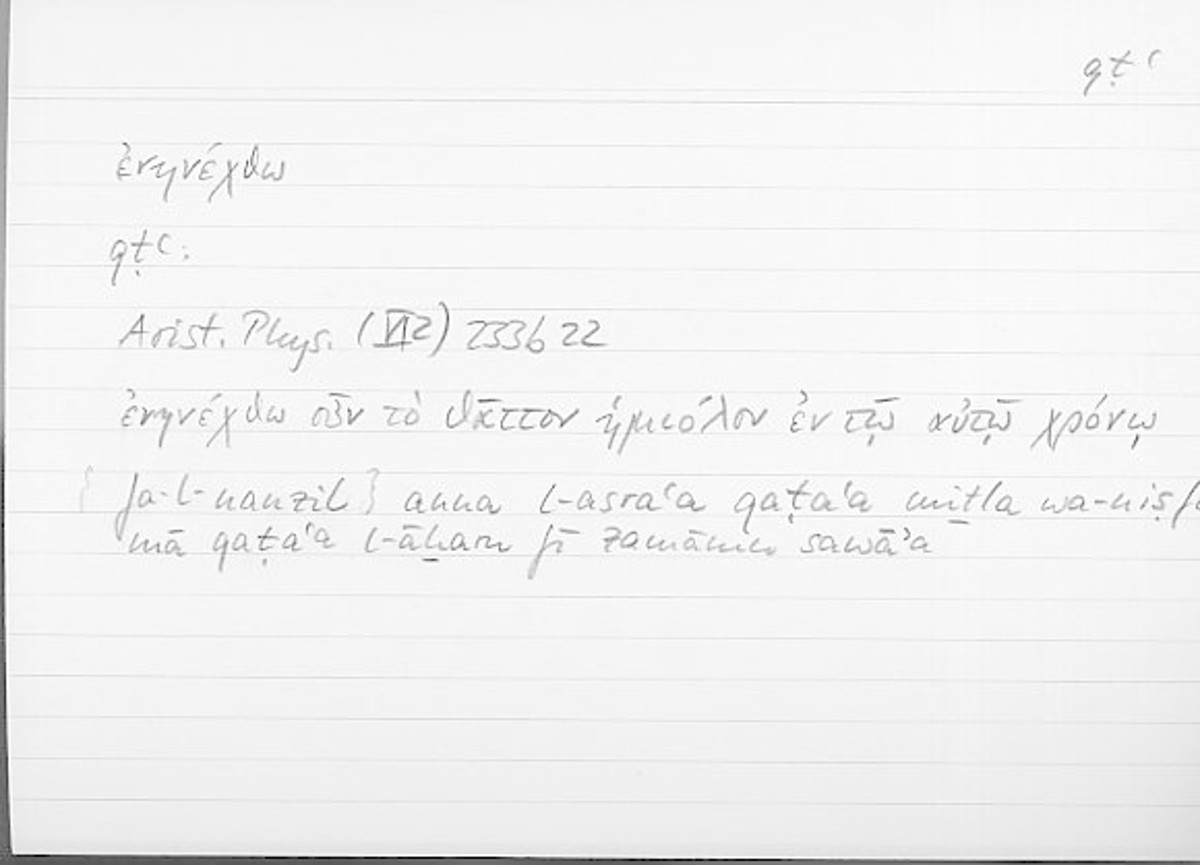 qṭʿ
ἐνηνέχθω
qṭʿ:
Arist. Phys. (VI2) 233b22
ἐνηνέχθω οὖν τὸ θᾶττον ἡμιόλον ἐν τῷ αὐτῷ χρόνῳ
{fa-l-nanzil} anna l-asraʿa qaṭaʿa miṯla wa-niṣf
mā qaṭaʿa l-āḫaru fī zamānin sawāʾa